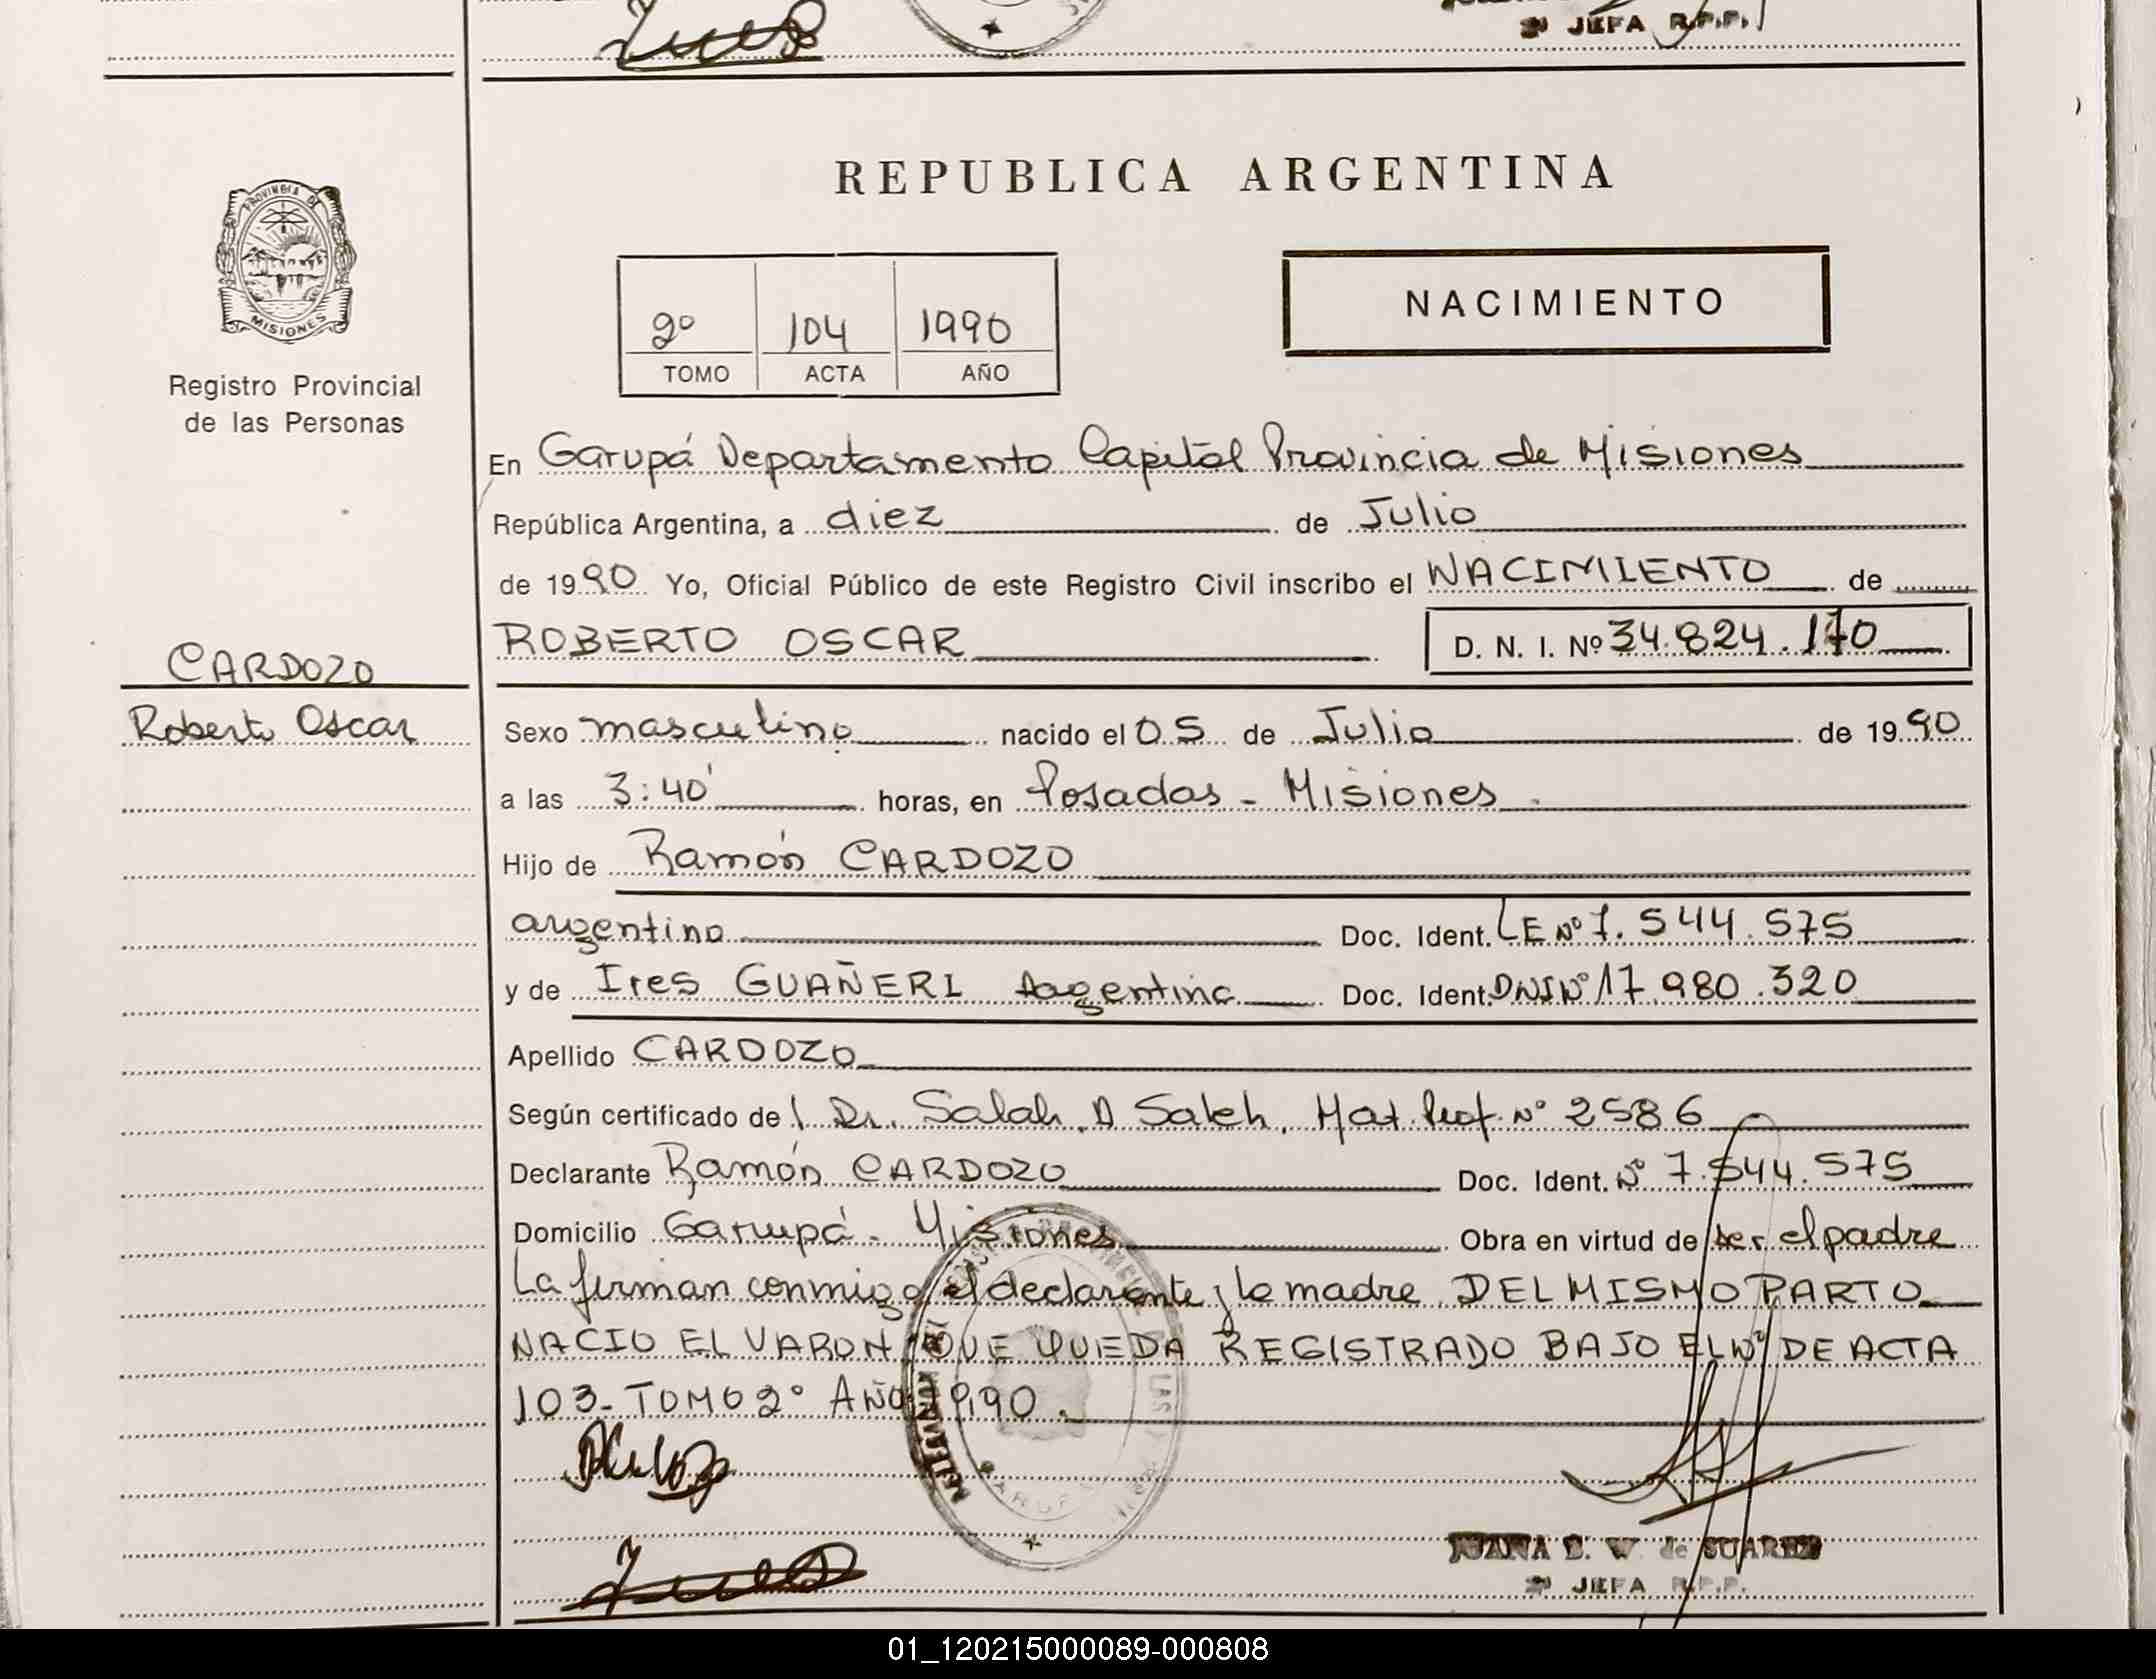 JEFA R.P.P.
REPUBLICA ARGENTINA
PROVINCIA DE
MISIONES
Registro Provincial
de las Personas
2º 104 1990
TOMO ACTA AÑO
NACIMIENTO
En Garupá Departamento Capital Provincia de Misiones
República Argentina, a diez de Julio
de 1990 Yo, Oficial Público de este Registro Civil inscribo el NACIMIENTO de
ROBERTO OSCAR D. N. I. Nº 34.824.170
CARDOZO
Roberto Oscar
Sexo masculino nacido el 05 de Julio de 1990
a las 3:40' horas, en Posadas - Misiones
Hijo de Ramón CARDOZO
argentino Doc. Ident. LE Nº 7.544.575
y de Ires GUAÑERI Argentina Doc. Ident. DNI Nº 17.980.320
Apellido CARDOZO
Según certificado de l Dr. Salah. A Saleh. Mat. Prof. Nº 2586
Declarante Ramón CARDOZO Doc. Ident. Nº 7.544.575
Domicilio Garupá - Misiones Obra en virtud de ser el padre
La firman conmigo el declarante y la madre. DEL MISMO PARTO
NACIO EL VARON QUE QUEDA REGISTRADO BAJO EL Nº DE ACTA
103 - TOMO 2º AÑO 1990.
JUANA E. W. de SUAREZ
JEFA R.P.P.
01_120215000089-000808